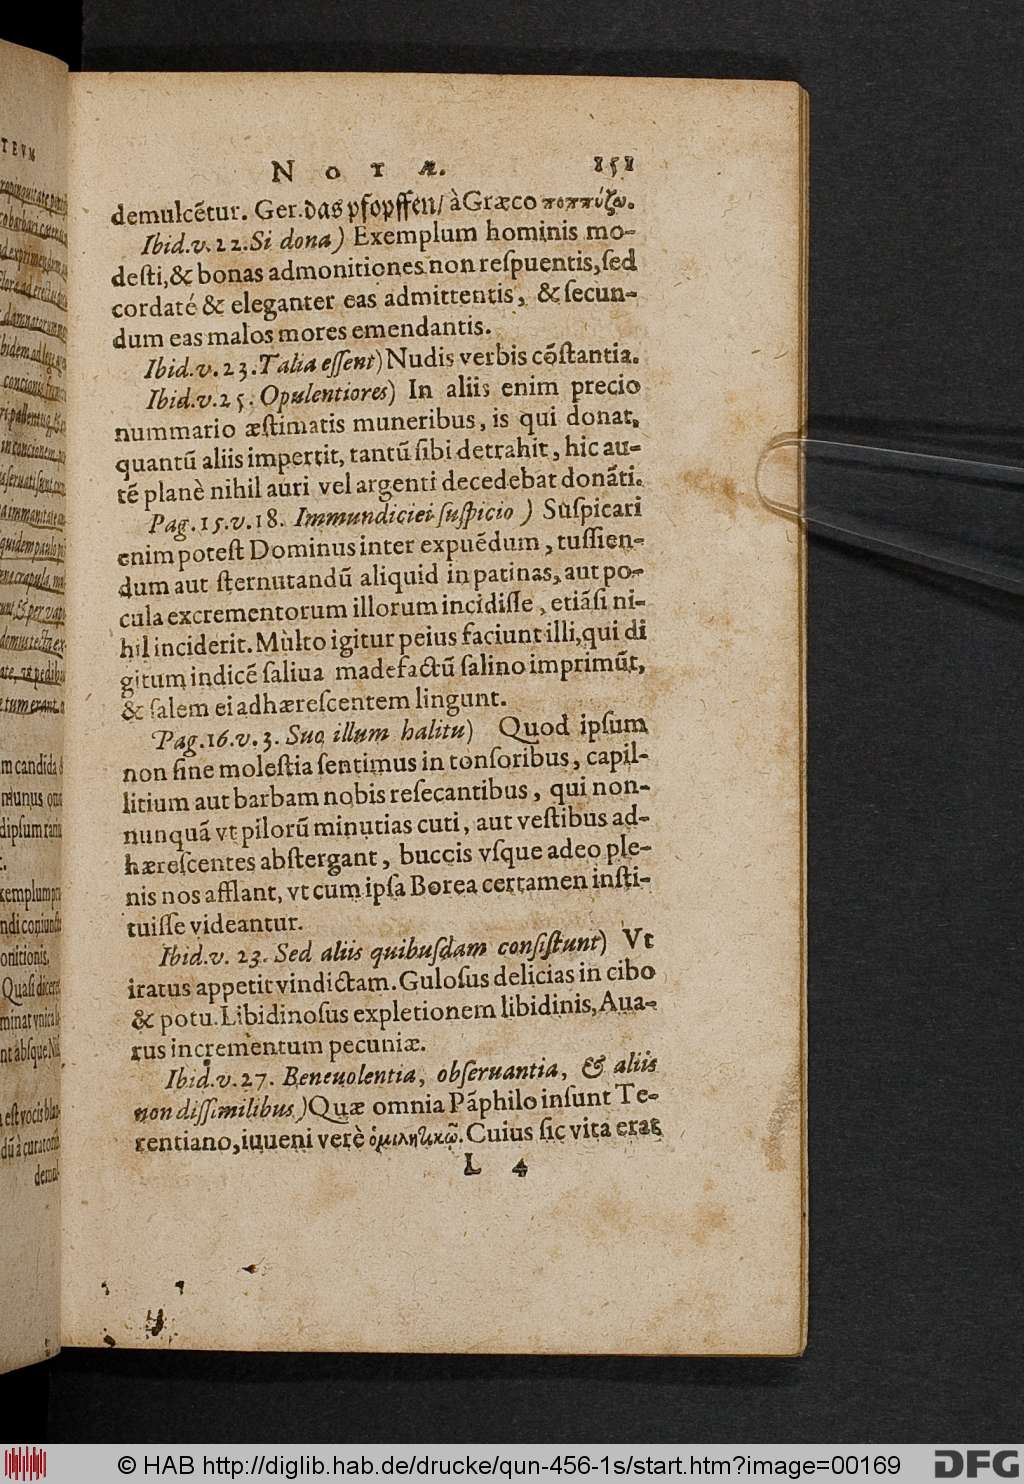 NOTÆ. 151
demulcẽtur. Ger. das pfopffen/ à Græco ποππύζω.
Ibid.v.22. Si dona) Exemplum hominis mo-
desti, & bonas admonitiones non reſpuentis, ſed
cordaté & eleganter eas admittentis, & ſecun-
dum eas malos mores emendantis.
Ibid.v.23. Talia eſſent) Nudis verbis cõſtantia.
Ibid.v.25. Opulentiores) In aliis enim precio
nummario æſtimatis muneribus, is qui donat,
quantũ aliis impertit, tantũ ſibi detrahit, hic au-
tẽ planè nihil auri vel argenti decedebat donãti.
Pag.15.v.18. Immundiciei ſuſpicio) Suſpicari
enim poteſt Dominus inter expuẽdum, tuſſien-
dum aut ſternutandũ aliquid in patinas, aut po-
cula excrementorum illorum incidiſſe, etiãſi ni-
hil inciderit. Multo igitur peius faciunt illi, qui di
gitum indicẽ ſaliua madefactũ ſalino imprimũt,
& ſalem ei adhæreſcentem lingunt.
Pag.16.v.3. Suo illum halitu) Quod ipſum
non ſine moleſtia ſentimus in tonſoribus, capil-
litium aut barbam nobis reſecantibus, qui non-
nunquã vt pilorũ minutias cuti, aut veſtibus ad-
hæreſcentes abſtergant, buccis vſque adeo ple-
nis nos afflant, vt cum ipſa Borea certamen inſti-
tuiſſe videantur.
Ibid.v.23. Sed aliis quibuſdam conſiſtunt) Vt
iratus appetit vindictam. Guloſus delicias in cibo
& potu. Libidinoſus expletionem libidinis, Aua-
rus incrementum pecuniæ.
Ibid.v.27. Beneuolentia, obſeruantia, & aliis
non diſſimilibus) Quæ omnia Pãphilo inſunt Te-
rentiano, iuueni verè ὁμιλητικῶ. Cuius ſic vita erat
L 4
TEVM
m candida
munus
exemplum
oritionis,
Quaſi
eſt vocis
demul-
© HAB http://diglib.hab.de/drucke/qun-456-1s/start.htm?image=00169
DFG